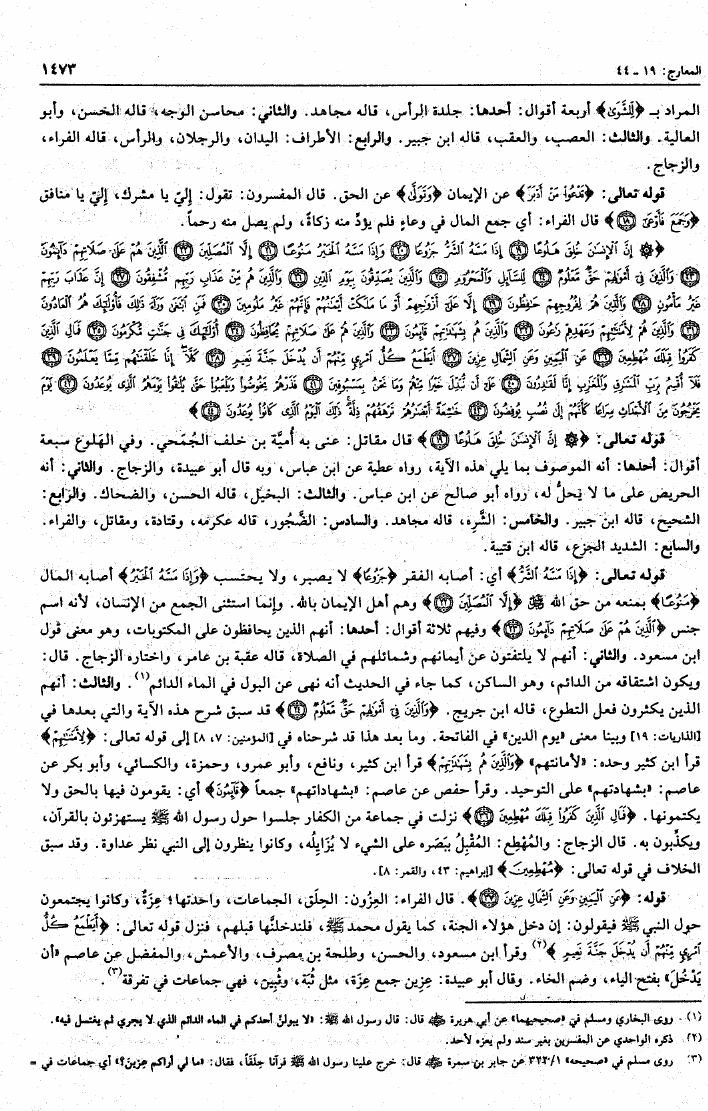 المعارج: ١٩ ـ ٤٤
١٤٧٣
المراد بـ ﴿لِلشَّوَى﴾ أربعة أقوال: أحدها: جلدة الرأس، قاله مجاهد. والثاني: محاسن الوجه، قاله الحسن، وأبو
العالية. والثالث: العصب، والعقب، قاله ابن جبير. والرابع: الأطراف: اليدان، والرجلان، والرأس، قاله الفراء،
والزجاج.
قوله تعالى: ﴿تَدْعُوا مَنْ أَدْبَرَ﴾ عن الإيمان ﴿وَتَوَلَّى﴾ عن الحق. قال المفسرون: تقول: إليّ يا مشرك، إليّ يا منافق
﴿وَجَمَعَ فَأَوْعَى ١٨﴾ قال الفراء: أي جمع المال في وعاءٍ فلم يؤدِّ منه زكاةً، ولم يصل منه رحماً.
﴿۞ إِنَّ الْإِنسَنَ خُلِقَ هَلُوعًا ١٩ إِذَا مَسَّهُ الشَّرُّ جَزُوعًا ٢٠ وَإِذَا مَسَّهُ الْخَيْرُ مَنُوعًا ٢١ إِلَّا الْمُصَلِّينَ ٢٢ الَّذِينَ هُمْ عَلَى صَلَاتِهِمْ دَآئِمُونَ
٢٣ وَالَّذِينَ فِي أَمْوَلِهِمْ حَقٌّ مَعْلُومٌ ٢٤ لِلسَّآئِلِ وَالْمَحْرُومِ ٢٥ وَالَّذِينَ يُصَدِّقُونَ بِيَوْمِ الدِّينِ ٢٦ وَالَّذِينَ هُم مِّنْ عَذَابِ رَبِّهِم مُّشْفِقُونَ ٢٧ إِنَّ عَذَابَ رَبِّهِمْ
غَيْرُ مَأْمُونٍ ٢٨ وَالَّذِينَ هُمْ لِفُرُوجِهِمْ حَفِظُونَ ٢٩ إِلَّا عَلَى أَزْوَجِهِمْ أَوْ مَا مَلَكَتْ أَيْمَنُهُمْ فَإِنَّهُمْ غَيْرُ مَلُومِينَ ٣٠ فَمَنِ ابْتَغَى وَرَآءَ ذَلِكَ فَأُوْلَئِكَ هُمُ الْعَادُونَ
٣١ وَالَّذِينَ هُمْ لِأَمَنَتِهِمْ وَعَهْدِهِمْ رَعُونَ ٣٢ وَالَّذِينَ هُم بِشَهَدَتِهِمْ قَآئِمُونَ ٣٣ وَالَّذِينَ هُمْ عَلَى صَلَاتِهِمْ يُحَافِظُونَ ٣٤ أُوْلَئِكَ فِي جَنَّتٍ مُّكْرَمُونَ ٣٥ فَمَالِ الَّذِينَ
كَفَرُوا قِبَلَكَ مُهْطِعِينَ ٣٦ عَنِ الْيَمِينِ وَعَنِ الشِّمَالِ عِزِينَ ٣٧ أَيَطْمَعُ كُلُّ امْرِئٍ مِّنْهُمْ أَن يُدْخَلَ جَنَّةَ نَعِيمٍ ٣٨ كَلَّا إِنَّا خَلَقْنَهُم مِّمَّا يَعْلَمُونَ ٣٩
فَلَا أُقْسِمُ بِرَبِّ الْمَشَرِقِ وَالْمَغَرِبِ إِنَّا لَقَدِرُونَ ٤٠ عَلَى أَن نُّبَدِّلَ خَيْرًا مِّنْهُمْ وَمَا نَحْنُ بِمَسْبُوقِينَ ٤١ فَذَرْهُمْ يَخُوضُوا وَيَلْعَبُوا حَتَّى يُلَقُوا يَوْمَهُمُ الَّذِي يُوعَدُونَ ٤٢ يَوْمَ
يَخْرُجُونَ مِنَ الْأَجْدَاثِ سِرَاعًا كَأَنَّهُمْ إِلَى نُصُبٍ يُوفِضُونَ ٤٣ خَشِعَةً أَبْصَرُهُمْ تَرْهَقُهُمْ ذِلَّةٌ ذَلِكَ الْيَوْمُ الَّذِي كَانُوا يُوعَدُونَ ٤٤﴾
قوله تعالى: ﴿۞ إِنَّ الْإِنسَنَ خُلِقَ هَلُوعًا ١٩﴾ قال مقاتل: عنى به أُميَّة بن خلف الجُمَحي. وفي الهَلوع سبعة
أقوال: أحدها: أنه الموصوف بما يلي هذه الآية، رواه عطية عن ابن عباس، وبه قال أبو عبيدة، والزجاج. والثاني: أنه
الحريص على ما لا يَحلُّ له، رواه أبو صالح عن ابن عباس. والثالث: البخيل، قاله الحسن، والضحاك. والرابع:
الشحيح، قاله ابن جبير. والخامس: الشَّرِه، قاله مجاهد. والسادس: الضَّجُور، قاله عكرمه، وقتادة، ومقاتل، والفراء.
والسابع: الشديد الجزع، قاله ابن قتيبة.
قوله تعالى: ﴿إِذَا مَسَّهُ الشَّرُّ﴾ أي: أصابه الفقر ﴿جَزُوعًا﴾ لا يصبر، ولا يحتسب ﴿وَإِذَا مَسَّهُ الْخَيْرُ﴾ أصابه المال
﴿مَنُوعًا﴾ بمنعه من حق الله ﷻ ﴿إِلَّا الْمُصَلِّينَ ٢٢﴾ وهم أهل الإيمان بالله. وإنما استثنى الجمع من الإنسان، لأنه اسم
جنس ﴿الَّذِينَ هُمْ عَلَى صَلَاتِهِمْ دَآئِمُونَ ٢٣﴾ وفيهم ثلاثة أقوال: أحدها: أنهم الذين يحافظون على المكتوبات، وهو معنى قول
ابن مسعود. والثاني: أنهم لا يلتفتون عن أيمانهم وشمائلهم في الصلاة، قاله عقبة بن عامر، واختاره الزجاج. قال:
ويكون اشتقاقه من الدائم، وهو الساكن، كما جاء في الحديث أنه نهى عن البول في الماء الدائم(١). والثالث: أنهم
الذين يكثرون فعل التطوع، قاله ابن جريج. ﴿وَالَّذِينَ فِي أَمْوَلِهِمْ حَقٌّ مَعْلُومٌ ٢٤﴾ قد سبق شرح هذه الآية والتي بعدها في
[الذاريات: ١٩] وبينا معنى «يوم الدين» في الفاتحة. وما بعد هذا قد شرحناه في [المؤمنين: ٧، ٨] إلى قوله تعالى: ﴿لِأَمَنَتِهِمْ﴾
قرأ ابن كثير وحده: «لأمانتهم» ﴿وَالَّذِينَ هُم بِشَهَدَتِهِمْ﴾ قرأ ابن كثير، ونافع، وأبو عمرو، وحمزة، والكسائي، وأبو بكر عن
عاصم: «بشهادتهم» على التوحيد. وقرأ حفص عن عاصم: «بشهاداتهم» جمعاً ﴿قَآئِمُونَ﴾ أي: يقومون فيها بالحق ولا
يكتمونها. ﴿فَمَالِ الَّذِينَ كَفَرُوا قِبَلَكَ مُهْطِعِينَ ٣٦﴾ نزلت في جماعة من الكفار جلسوا حول رسول الله ﷺ يستهزئون بالقرآن،
ويكذِّبون به. قال الزجاج: والمُهْطِع: المُقْبِلُ ببَصَره على الشيء لا يُزَايِلُه، وكانوا ينظرون إلى النبي نظر عداوة. وقد سبق
الخلاف في قوله تعالى: ﴿مُهْطِعِينَ﴾ [إبراهيم: ٤٣، والقمر: ٨].
قوله: ﴿عَنِ الْيَمِينِ وَعَنِ الشِّمَالِ عِزِينَ ٣٧﴾. قال الفراء: العِزُون: الحِلَق، الجماعات، واحدتها: عِزَةٌ، وكانوا يجتمعون
حول النبي ﷺ فيقولون: إن دخل هؤلاء الجنة، كما يقول محمد ﷺ، فلندخلنَّها قبلهم، فنزل قوله تعالى: ﴿أَيَطْمَعُ كُلُّ
امْرِئٍ مِّنْهُمْ أَن يُدْخَلَ جَنَّةَ نَعِيمٍ ٣٨﴾(٢) وقرأ ابن مسعود، والحسن، وطلحة بن مصرف، والأعمش، والمفضل عن عاصم «أن
يَدْخُلَ» بفتح الياء، وضم الخاء. وقال أبو عبيدة: عِزِين جمع عِزَة، مثل ثُبَة، وثُبِين، فهي جماعات في تفرقة(٣).
(١) روى البخاري ومسلم في «صحيحيهما» عن أبي هريرة ﷺ قال: قال رسول الله ﷺ: «لا يبولنّ أحدكم في الماء الدائم الذي لا يجري ثم يغتسل فيه».
(٢) ذكره الواحدي عن المفسرين بغير سند ولم يعزه لأحد.
(٣) روى مسلم في «صحيحه» ٣٢٢/١ عن جابر بن سمرة ﷺ قال: خرج علينا رسول الله ﷺ فرآنا حِلَقاً، فقال: «ما لي أراكم عِزِينَ؟» أي جماعات في =